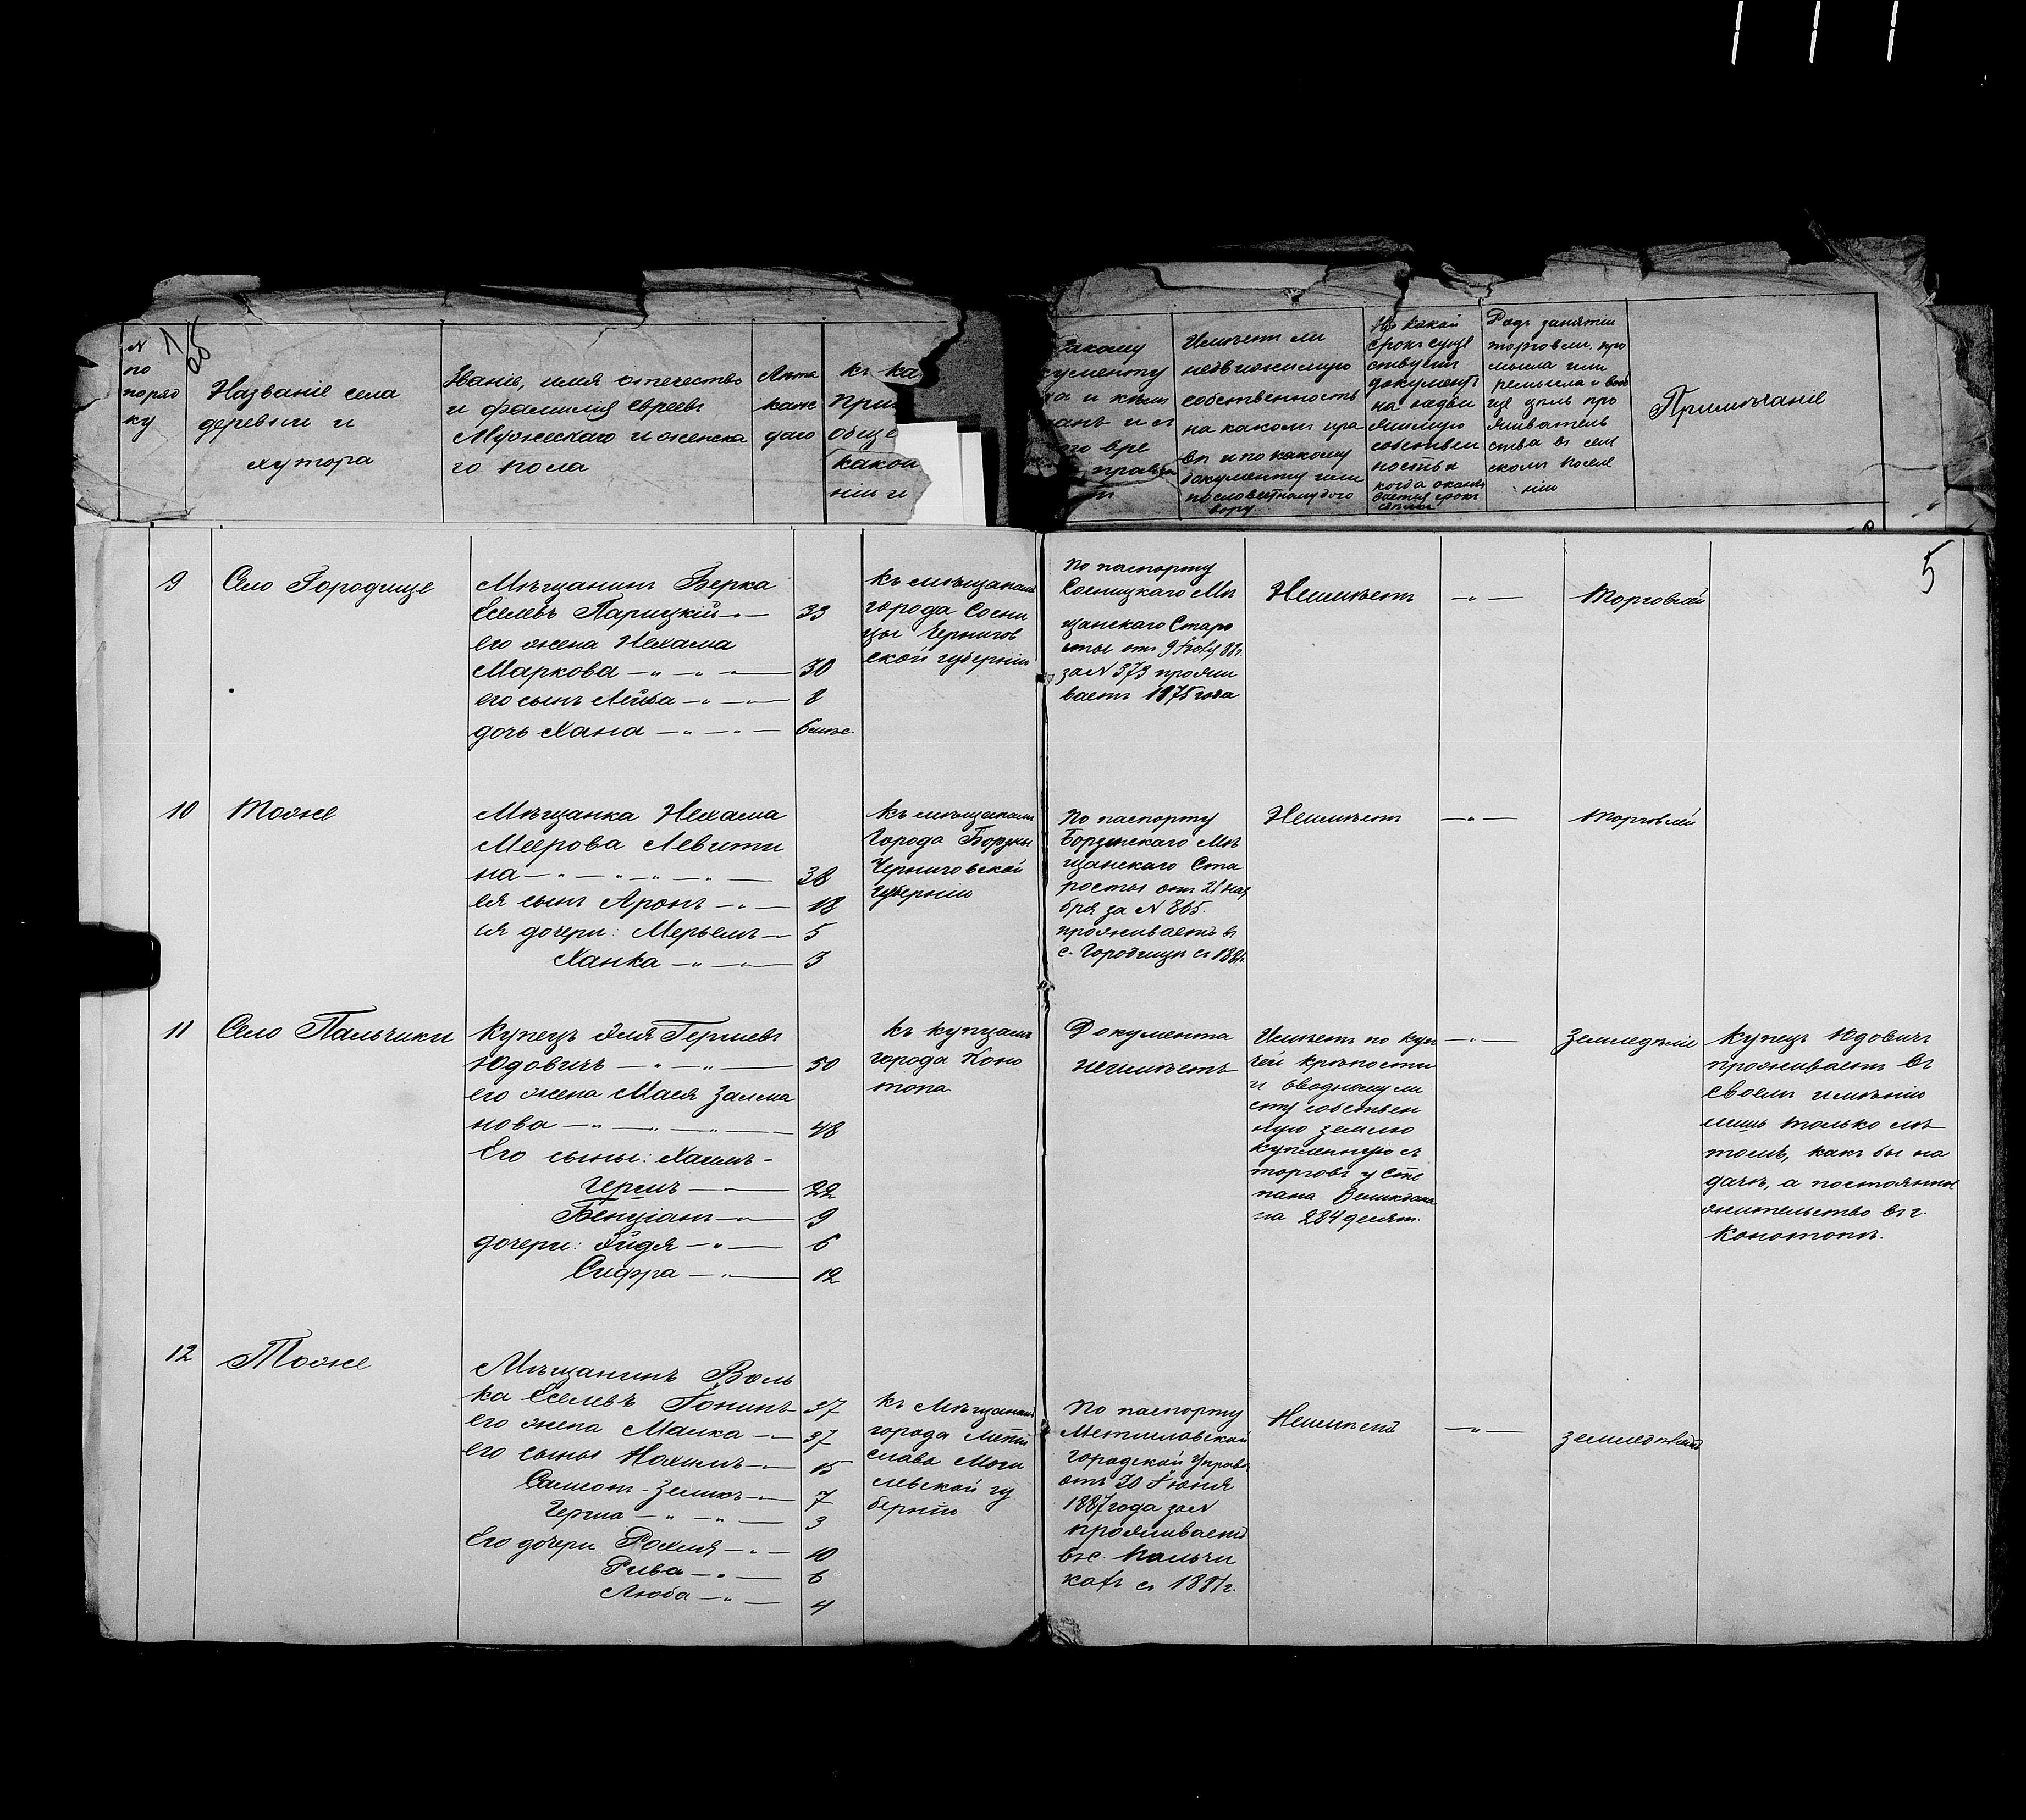 №
по
поряд
ку
1
об
Названіе села
деревни и
хутора
Званіе, имя отчество
и фамилія евреевъ
Мужескаго и женска
го пола
Лѣта
каж
даго
къ ка
при
обще
какой
ніи и
какому
кументу
и кѣмъ
данъ и съ
го вре
Имѣетъ ли
недвижимую
собственность
на какомъ пра
вѣ и по какому
документу или
по словестному дого
вору
На какой
срокъ суще
ствуетъ
документъ
на недви
жимую
собствен
ность и
когда оканчи
вается срокъ
Родъ занятій
торговли, про
мысла или
ремысла и вооб
ще цѣль про
живатель
ства въ сел
скомъ поселе
ніи
Примѣчаніе
5
9
Село Городище
Мѣщанинъ Берка
Еселевъ Парицкій — 33
его жена Нехама
Маркова — " — " — 30
его сынъ Лейба — " — 8
дочь Хана — " — " — 6 мѣс.
къ мѣщанамъ
города Сосни
цы Чернигов
ской губерніи
По паспорту
Сосницкаго Мѣ
щанскаго Старо
сты отъ 9
за № 373 прожи
ваетъ 1875 года
Неимѣетъ
— " —
Торговлей
10
Тоже
Мѣщанка Нехама
Меерова Левити
на — " — " — " — " — 38
ея сынъ Аронъ — " — 18
ея дочери: Мерьемъ — 5
Ханка — " — " — 3
къ мѣщанамъ
города Борзны
Черниговской
губерніи
По паспорту
Борзенскаго Мѣ
щанскаго Ста
росты отъ 21 ноя
бря за № 865.
проживаетъ въ
с. Городищѣ съ 1881г.
Неимѣетъ
— " —
Торговлей
11
Село Пальчики
Купецъ Эля Гершевъ
Юдовичъ — " — " — 50
его жена Мася Залма
нова — " — " — " — 48
Его сыны: Хаимъ-
Гершъ — " — 22
Бенціанъ — " — 9
дочери: Эйдя — " — 6
Сифра — " — 12
къ купцамъ
города Коно
топа
Документа
неимѣетъ
Имѣетъ по куп
чей крѣпости
и вводному ли
сту собствен
ную землю
купленную съ
торговъ у Сте
пана
на 284 десят.
— " —
Земледѣліе
Купецъ Юдовичъ
проживаетъ въ
своемъ имѣніи
лишь только лѣ
томъ, какъ бы на
дачѣ, а постоянное
жительство въ г.
Конотопѣ.
12
Тоже
Мѣщанинъ Воль
ка Еселевъ Гонинъ 37
его жена Малка — " — 37
его сыны Нохимъ — " — 15
Зеликъ — " — 7
Герша — " — " — 3
Его дочери Рохля — " — 10
Рива — " — 6
Люба — " — 4
къ Мѣщанамъ
города Мсти
славъ Моги
левской гу
берніи
По паспорту
Мстиславской
городской Управы
отъ 30 Іюня
1887 года за №
проживаетъ
въ с. Пальчи
кахъ съ 1881г.
Неимѣетъ
— " —
земледѣліемъ